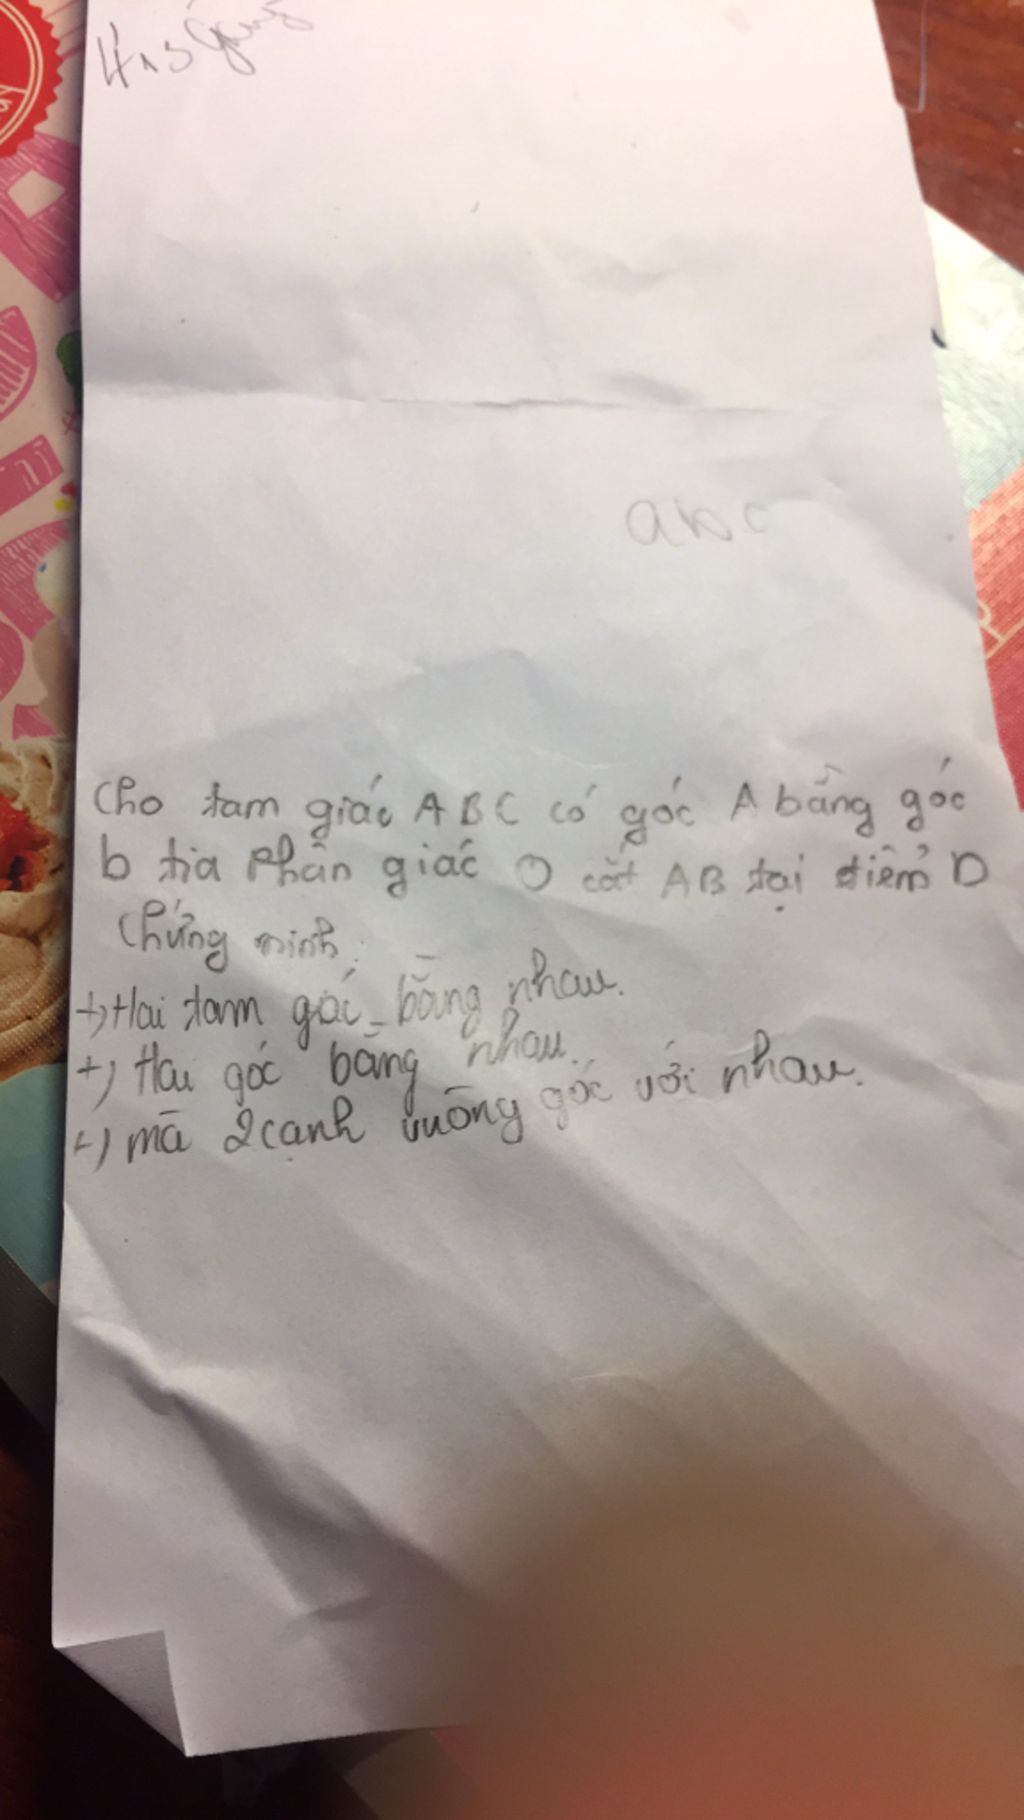 abc
Cho tam giác ABC có góc A bằng góc
b tia Phân giác O cắt AB tại điểm D
Chứng minh:
+) Hai tam gác bằng nhau.
+) Hai góc bằng nhau.
+) mà 2 cạnh vuông góc với nhau.